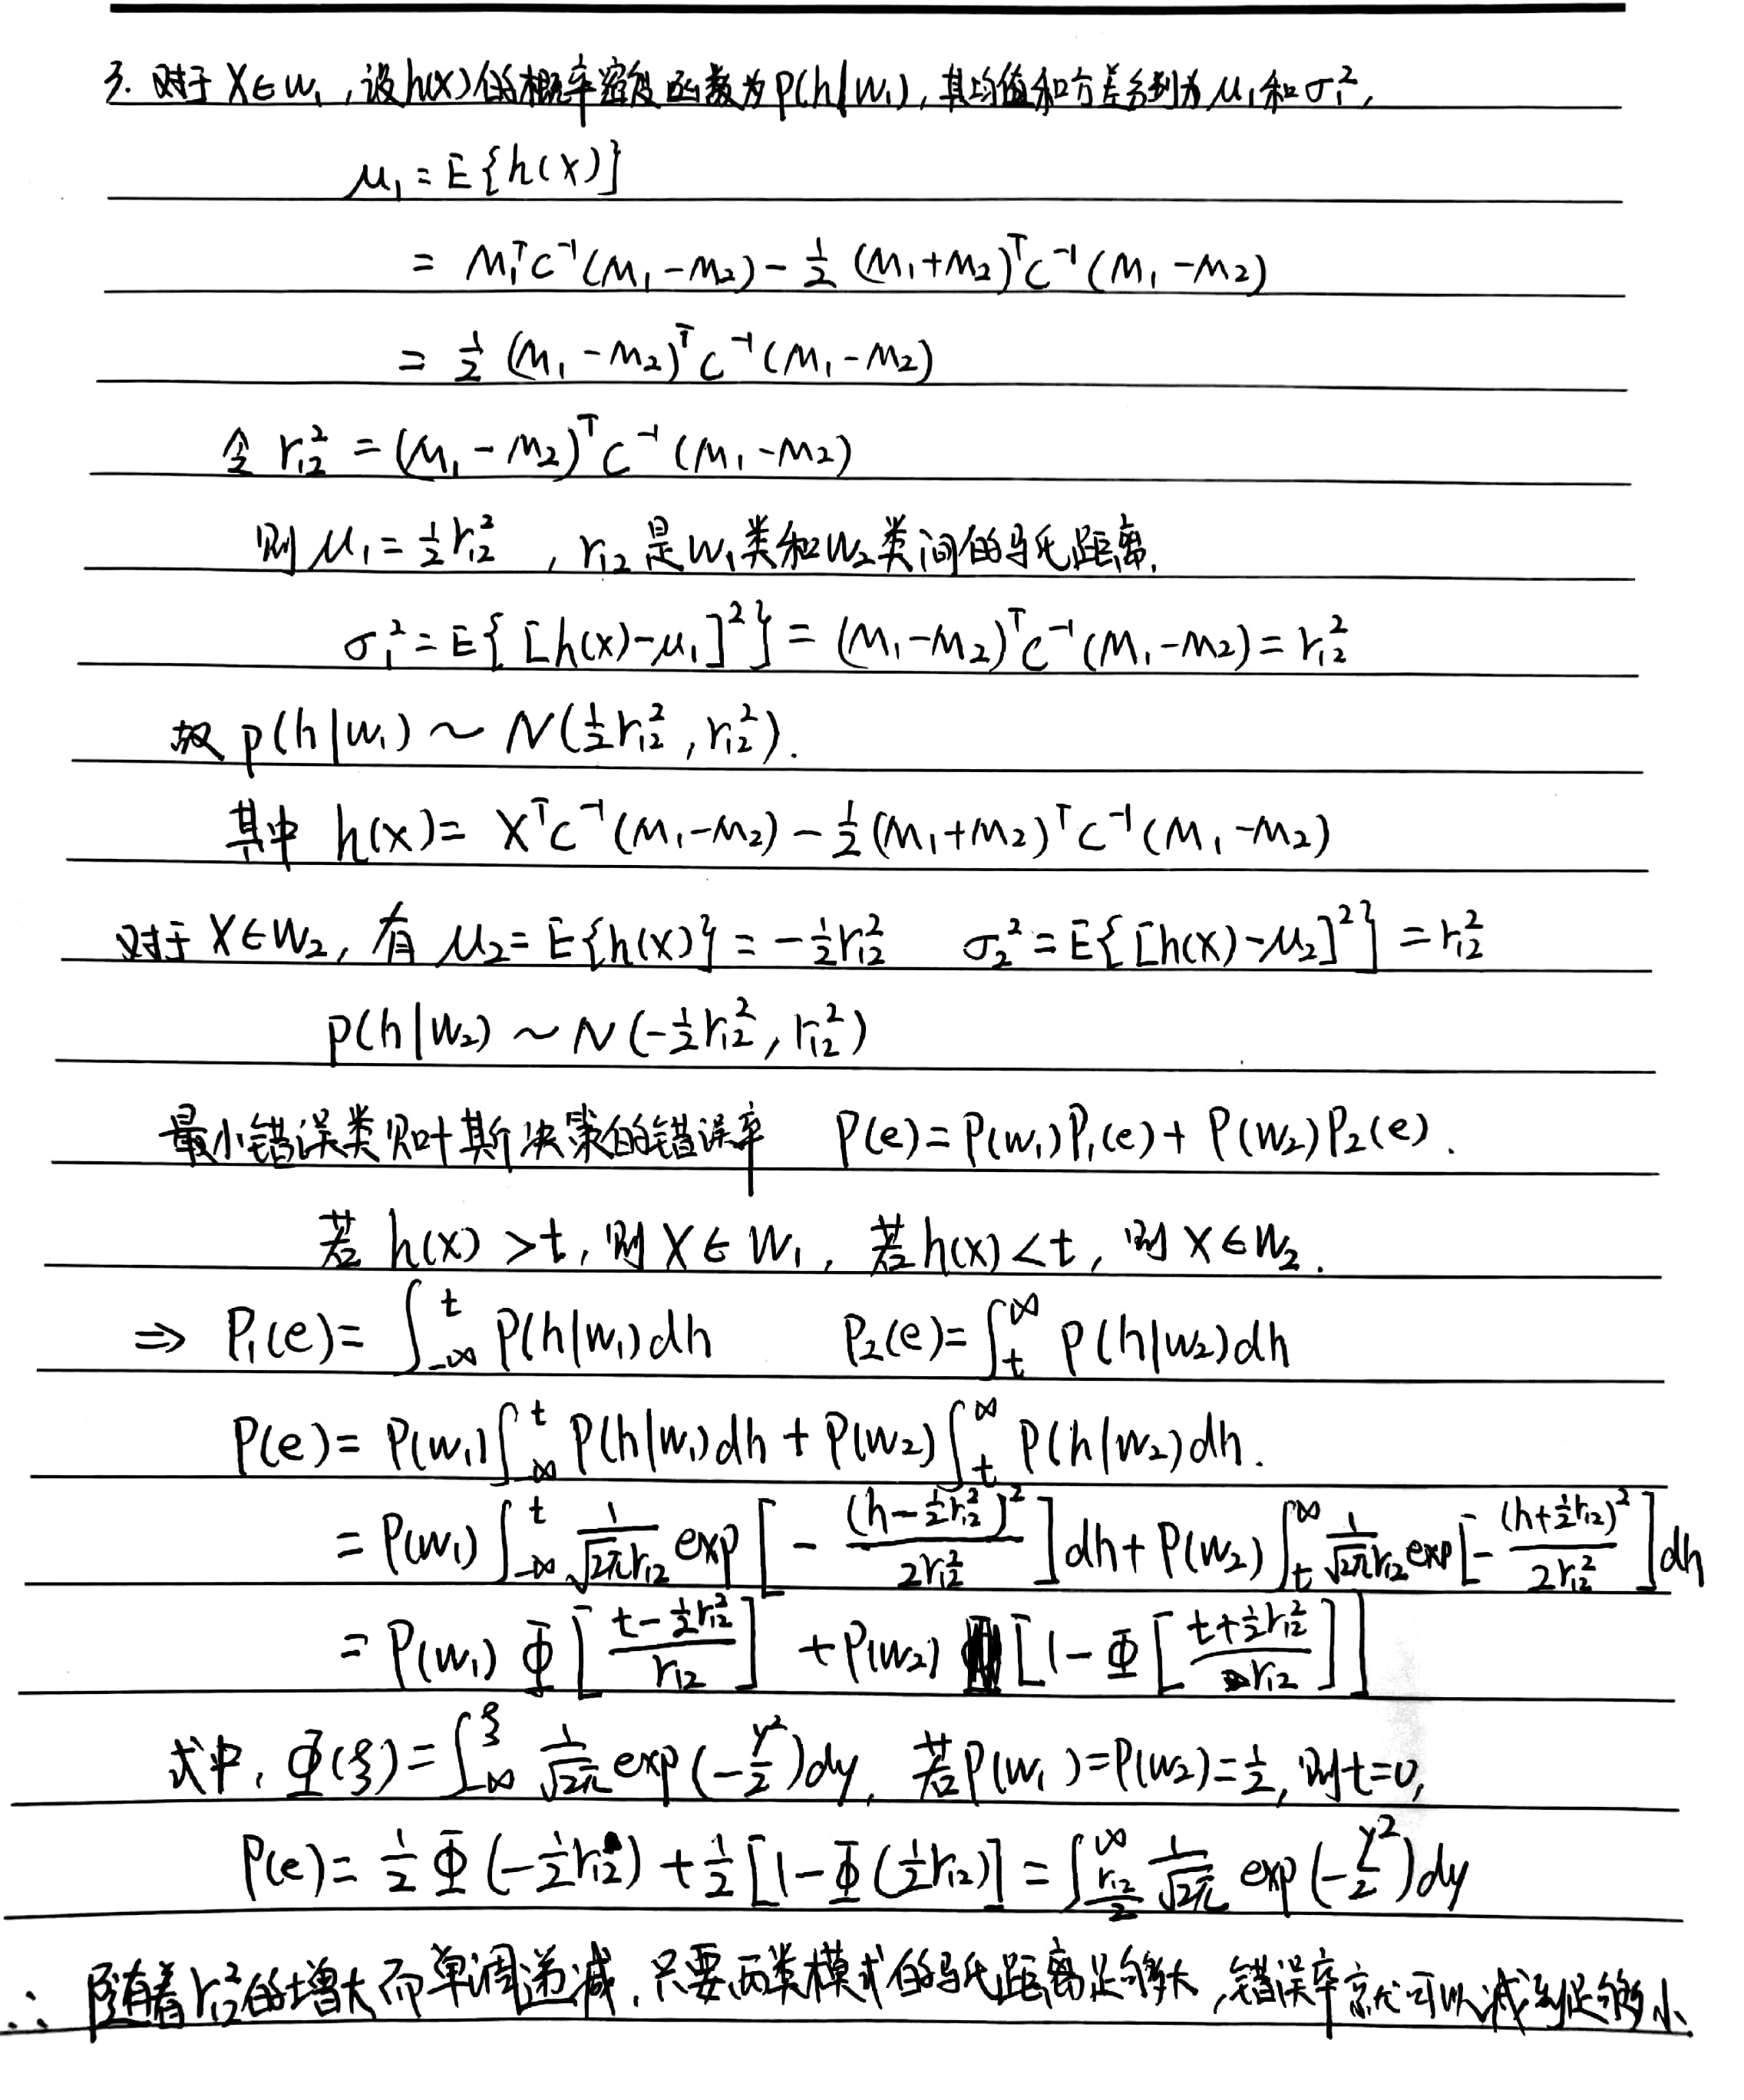 3. 对于 X∈w₁，设h(x)的概率密度函数为p(h|w₁)，其均值和方差分别为μ₁和σ₁²，
μ₁ = E{h(x)}
= M₁ᵀC⁻¹(M₁-M₂) - ½ (M₁+M₂)ᵀC⁻¹(M₁-M₂)
= ½ (M₁-M₂)ᵀC⁻¹(M₁-M₂)
令 r₁₂² = (M₁-M₂)ᵀC⁻¹(M₁-M₂)
则 μ₁ = ½r₁₂² ，r₁₂是w₁类和w₂类间的马氏距离.
σ₁² = E{[h(x)-μ₁]²} = (M₁-M₂)ᵀC⁻¹(M₁-M₂) = r₁₂²
故 p(h|w₁) ~ N(½r₁₂², r₁₂²).
其中 h(x) = XᵀC⁻¹(M₁-M₂) - ½(M₁+M₂)ᵀC⁻¹(M₁-M₂)
对于 X∈w₂，有 μ₂ = E{h(x)} = -½r₁₂² σ₂² = E{[h(x)-μ₂]²} = r₁₂²
p(h|w₂) ~ N(-½r₁₂², r₁₂²)
最小错误类贝叶斯决策的错误率 P(e) = P(w₁)P₁(e) + P(w₂)P₂(e).
若 h(x) > t，则 X∈w₁，若 h(x) < t，则 X∈w₂.
⇒ P₁(e) = ∫_{-∞}^{t} P(h|w₁)dh P₂(e) = ∫_{t}^{∞} P(h|w₂)dh
P(e) = P(w₁)∫_{-∞}^{t} P(h|w₁)dh + P(w₂)∫_{t}^{∞} P(h|w₂)dh.
= P(w₁) ∫_{-∞}^{t} 1/(√(2π)r₁₂) exp[-(h-½r₁₂²)²/(2r₁₂²)]dh + P(w₂) ∫_{t}^{∞} 1/(√(2π)r₁₂) exp[-(h+½r₁₂)²/(2r₁₂²)]dh
= P(w₁) Φ[(t-½r₁₂²)/r₁₂] + P(w₂) [1-Φ[(t+½r₁₂²)/r₁₂]]
式中，Φ(ξ) = ∫_{-∞}^{ξ} 1/√(2π) exp(-y²/2)dy，若P(w₁)=P(w₂)=½，则t=0，
P(e) = ½ Φ(-½r₁₂) + ½[1-Φ(½r₁₂)] = ∫_{r₁₂/2}^{∞} 1/√(2π) exp(-y²/2)dy
∴ 随着r₁₂²的增大而单调递减，只要两类模式的马氏距离足够大，错误率就可以减到足够小.